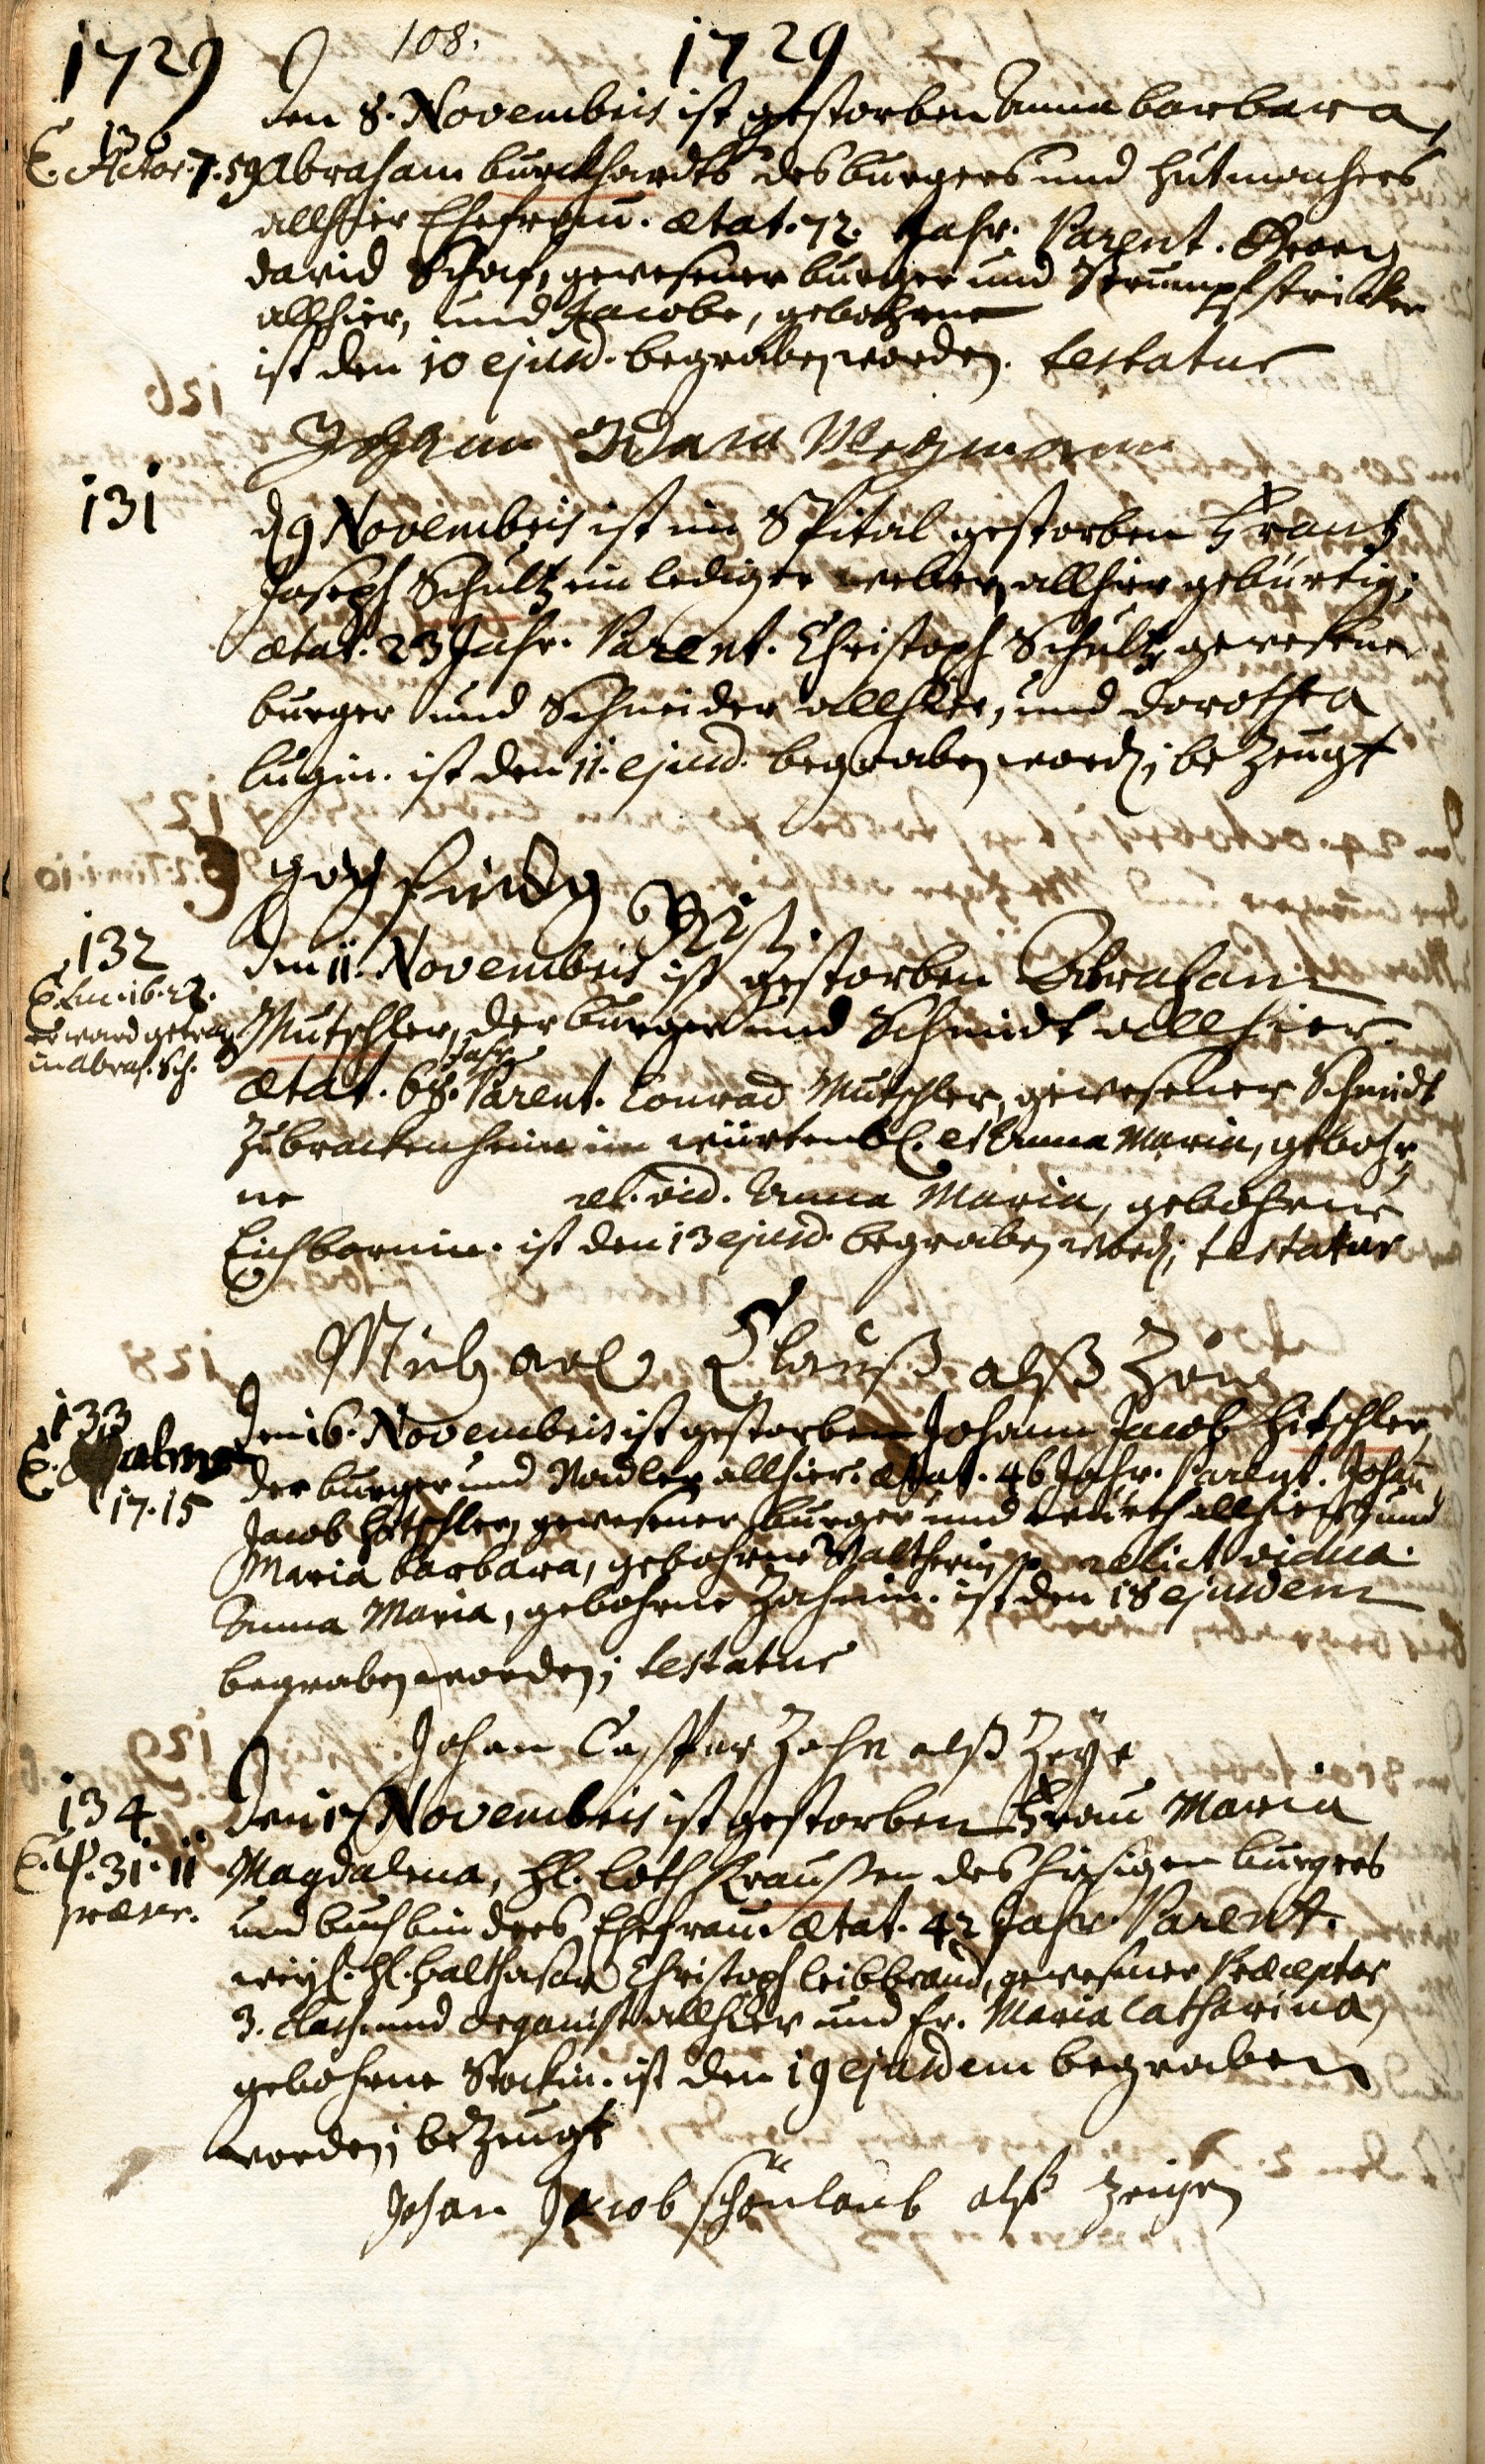 1729 108. 1729
den 8. Novembris ist gestorben Anna Barbara,
130
E. Actor. 7. 59
Abraham Burckhardts des burgers und hutmachers
allhier Ehefrau. ætat. 72. Jahr. Parent. Georg
David Schaf, gewesener burger und Strumpfstricker
allhier, und Jacobe, gebohrne
ist den 10 ejusd. begraben worden. testatur
Johann Adam Wegmann
131
d 9 Novembris ist im Spital gestorben Frantz
Joseph Schultz ein lediger weber, allhier gebürtig;
ætat. 23 Jahr. Parent. Christoph Schultz gewesener
burger und Schneider allhier, und Dorothea
Lugin. ist den 11. ejusd. begraben word; bezeugt
132
E. Luc. 16. 22.
er ward getrag
in Abrah. Sch.
den 11. Novembris ist gestorben Abraham
Mutschler, der burger und Schmidt allhier.
ætat. 68. Jahr Parent. Conrad Mutschler, gewesener Schmidt
zu brackenheim im würtenb. et Anna Maria, gebohr
ne rel. vid. Anna Maria, gebohrne
Eichbornin. ist den 13 ejusd. begraben word; testatur
Michael Clauß alß Zeug
133
E. Psalm
17. 15
den 16. Novembris ist gestorben Johann Jacob Hitschler,
der burger und Nadler allhier. ætat. 46 Jahr. Parent. Johan
Jacob Hitschler, gewesener burger und würth allhier, und
Maria Barbara, gebohrne Waltherin relict vidua.
Anna Maria, gebohrne Zahnin. ist den 18 ejusdem
begraben worden; testatur
Johan Casspar Zahn alß Zeüge
134
E. Ps. 31. 11
den 17 Novembris ist gestorben Frau Maria
Magdalena, H. Loth Kraußen des hiesigen burgers
und buchbinders Ehefrau. ætat. 42 Jahr. Parent.
weyl. H. Balthasar Christoph Leibbrand, gewesener Præceptor
3. Class. und Organist allhier und Fr. Maria Catharina,
gebohrne Stockin. ist den 19 ejusdem begraben
worden; bezeugt
Johan Jacob Schönlaub alß zeugen